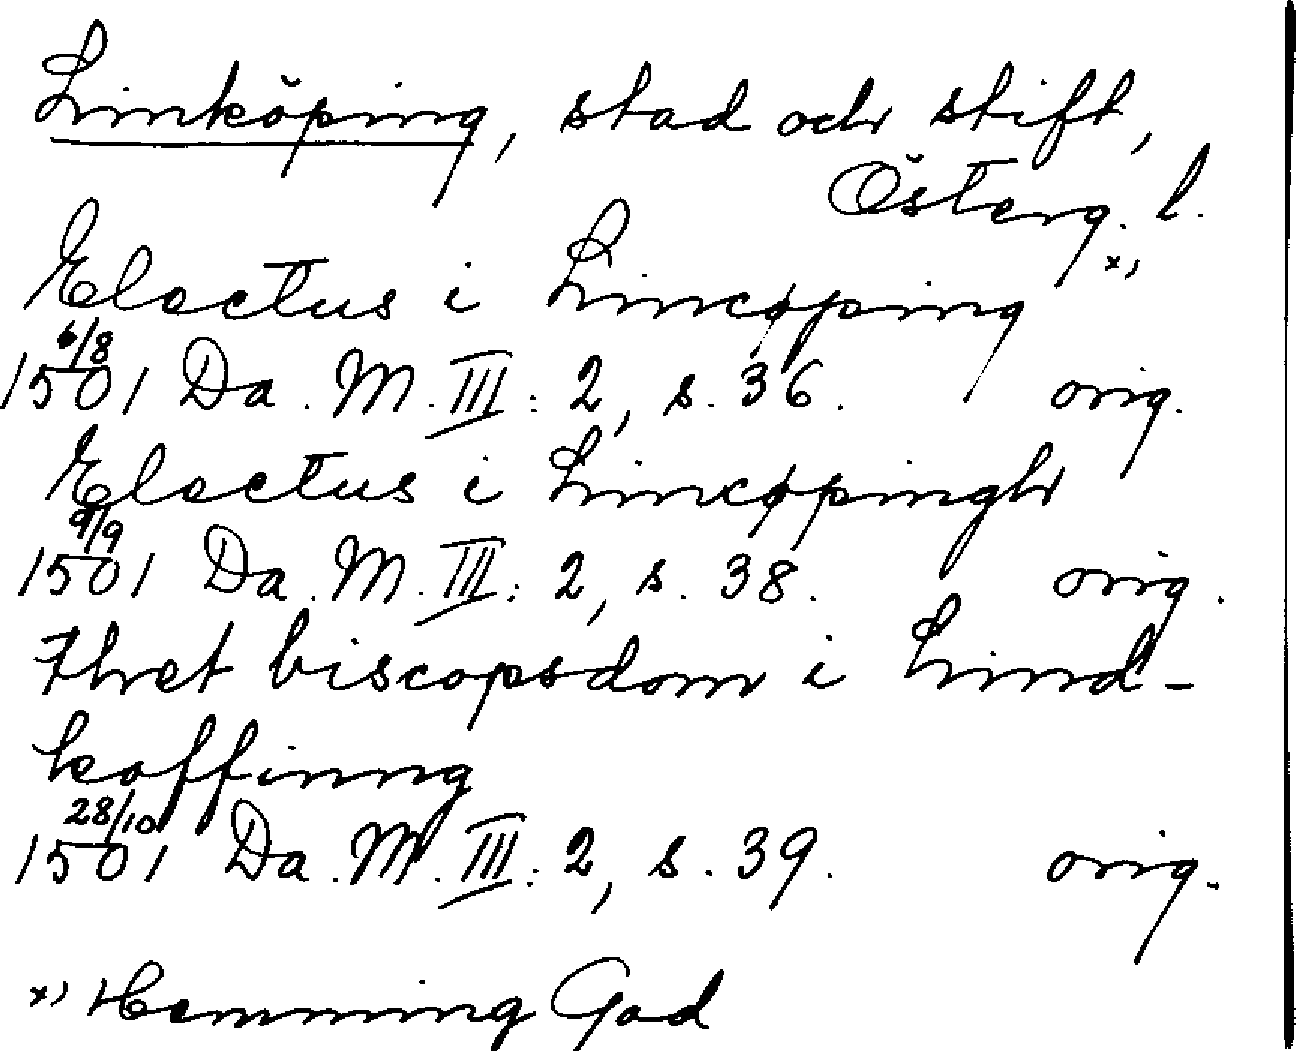 Linköping, stad och stift,
Österg. l.
Electus i Lincøping x)
6/8 1501 Da. M. III: 2, s. 36. orig.
Electus i Lincøpingh
9/9 1501 Da. M. III: 2, s. 38. orig.
Thet biscopsdom i Lind-
koffinng
28/10 1501 Da. M. III: 2, s. 39. orig.
x) Hemming Gad